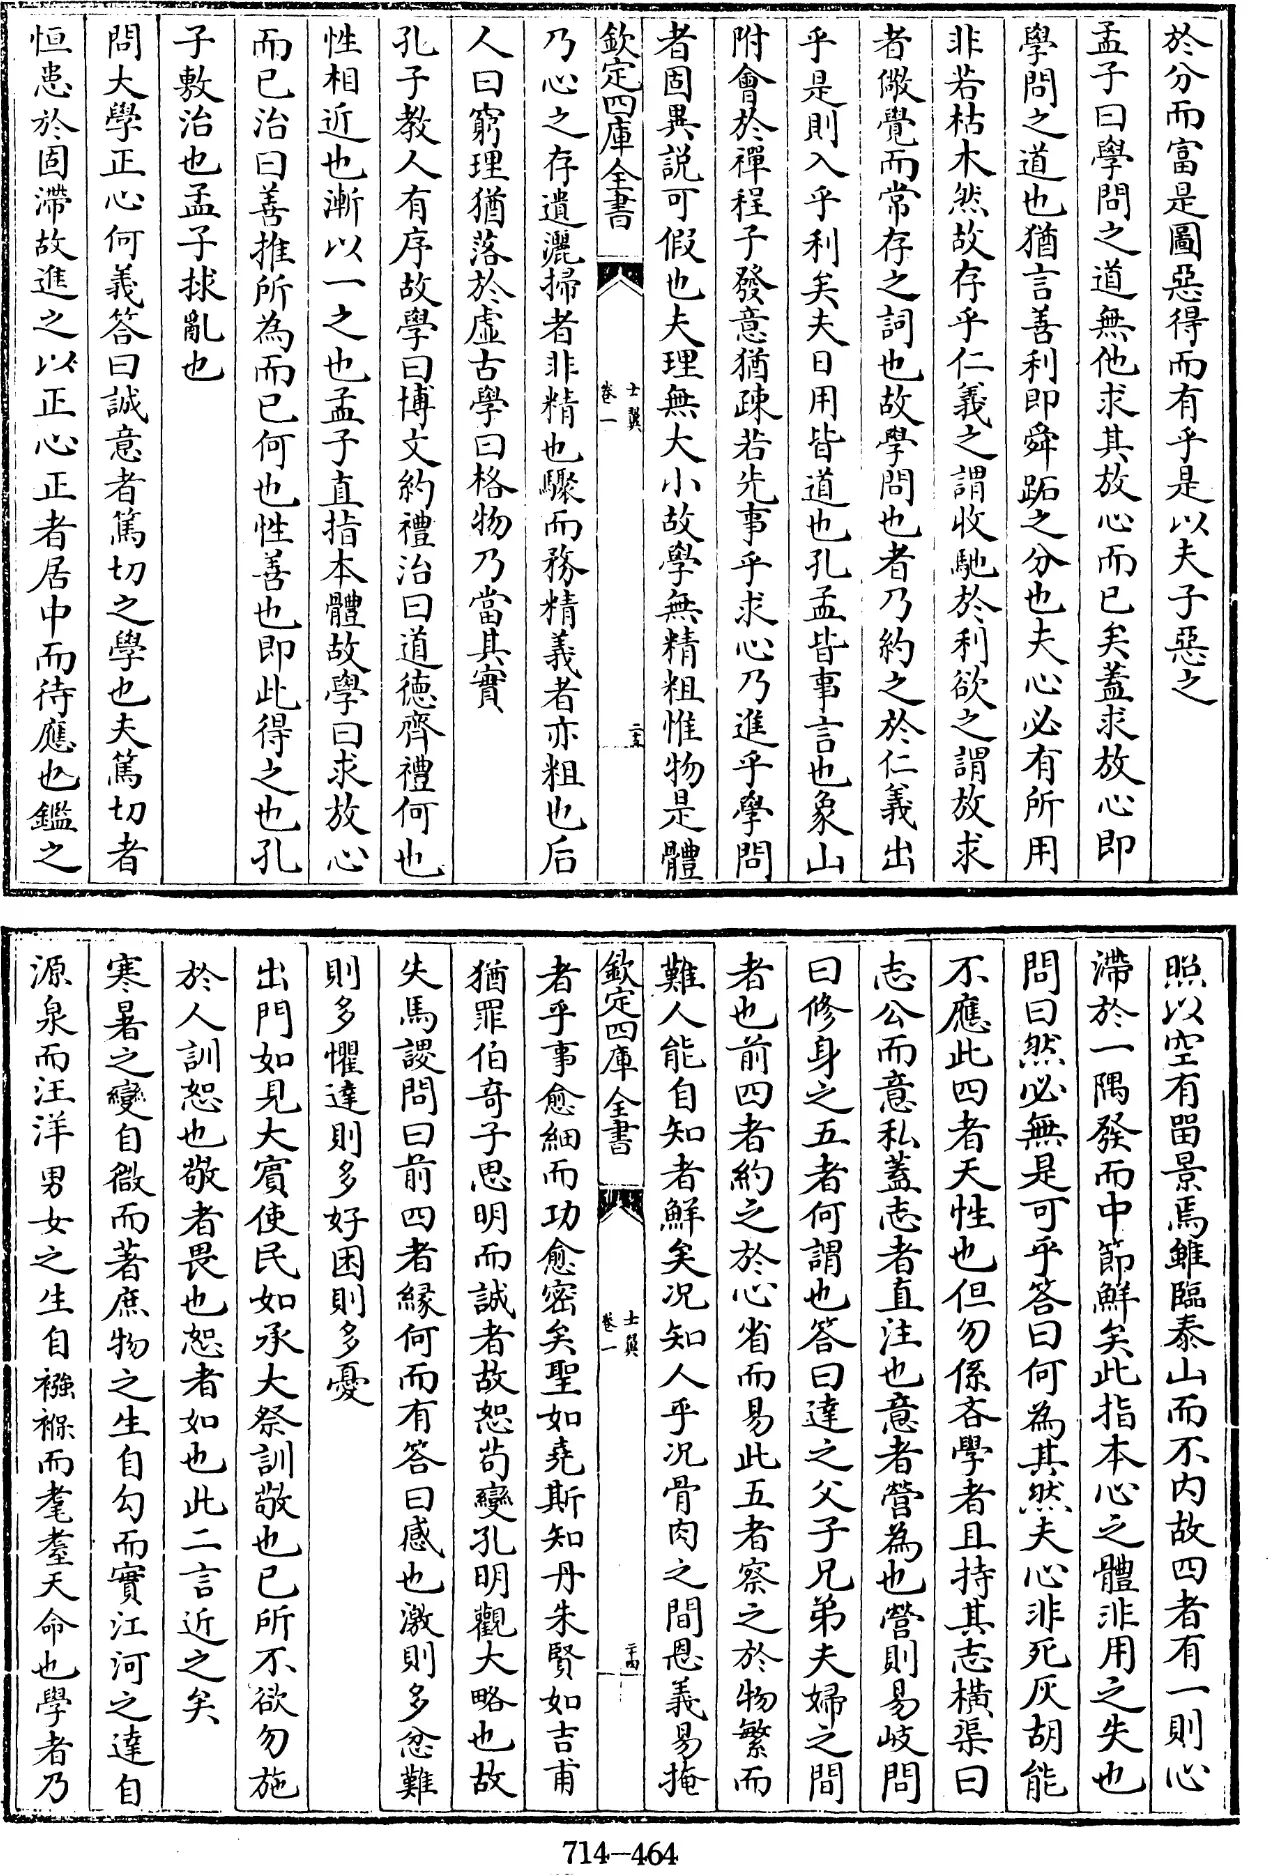 於分而富是圖惡得而有乎是以夫子惡之
孟子曰學問之道無他求其放心而已矣蓋求放心即
學問之道也猶言善利即舜跖之分也夫心必有所用
非若枯木然故存乎仁義之謂收馳於利欲之謂放求
者儆覺而常存之詞也故學問也者乃約之於仁義出
乎是則入乎利矣夫日用皆道也孔孟皆事言也象山
附會於禪程子發意猶疎若先事乎求心乃進乎學問
者固異説可假也夫理無大小故學無精粗惟物是體
欽定四庫全書
士翼
卷一
二十三
乃心之存遺灑掃者非精也驟而務精義者亦粗也后
人曰窮理猶落於虛古學曰格物乃當其實
孔子教人有序故學曰博文約禮治曰道德齊禮何也
性相近也漸以一之也孟子直指本體故學曰求放心
而已治曰善推所為而已何也性善也即此得之也孔
子敷治也孟子捄亂也
問大學正心何義答曰誠意者篤切之學也夫篤切者
恒患於固滯故進之以正心正者居中而待應也鑑之
照以空有留景焉雖臨泰山而不内故四者有一則心
滯於一隅發而中節鮮矣此指本心之體非用之失也
問曰然必無是可乎答曰何為其然夫心非死灰胡能
不應此四者天性也但勿係吝學者且持其志橫渠曰
志公而意私蓋志者直注也意者營為也營則易岐問
曰修身之五者何謂也答曰達之父子兄弟夫婦之間
者也前四者約之於心省而易此五者察之於物繁而
難人能自知者鮮矣况知人乎况骨肉之間恩義易掩
欽定四庫全書
士翼
卷一
二十四
者乎事愈細而功愈密矣聖如堯斯知丹朱賢如吉甫
猶罪伯奇子思明而誠者故恕苟變孔明觀大略也故
失馬謖問曰前四者緣何而有答曰感也激則多忿難
則多懼達則多好困則多憂
出門如見大賓使民如承大祭訓敬也已所不欲勿施
於人訓恕也敬者畏也恕者如也此二言近之矣
寒暑之變自微而著庶物之生自勾而實江河之達自
源泉而汪洋男女之生自襁褓而耄耋天命也學者乃
714—464